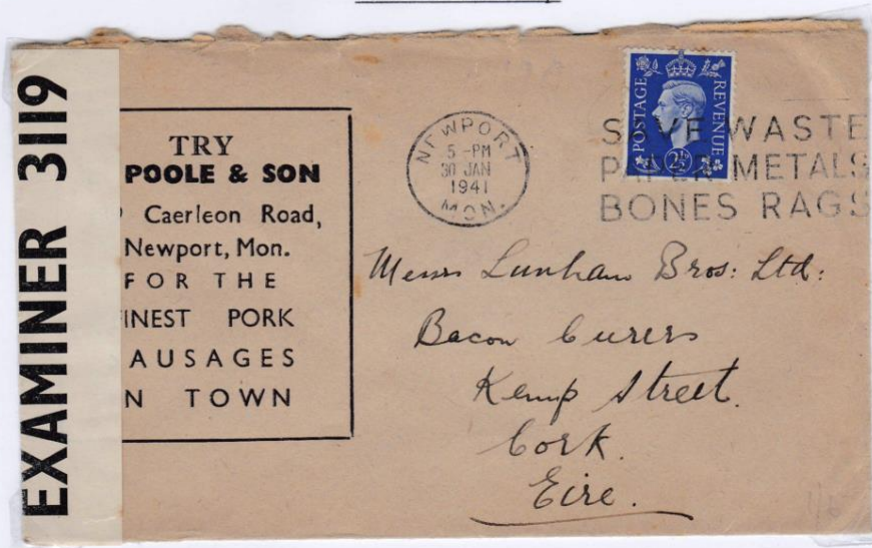 EXAMINER 3119
TRY
POOLE & SON
Caerleon Road,
Newport, Mon.
FOR THE
INEST PORK
AUSAGES
N TOWN
NEWPORT
5 - PM
30 JAN
1941
MON.
POSTAGE REVENUE
2½
SAVE WASTE
PAPER METALS
BONES RAGS
Messrs Lunham Bros: Ltd:
Bacon Curers
Kemp Street.
Cork.
Eire.